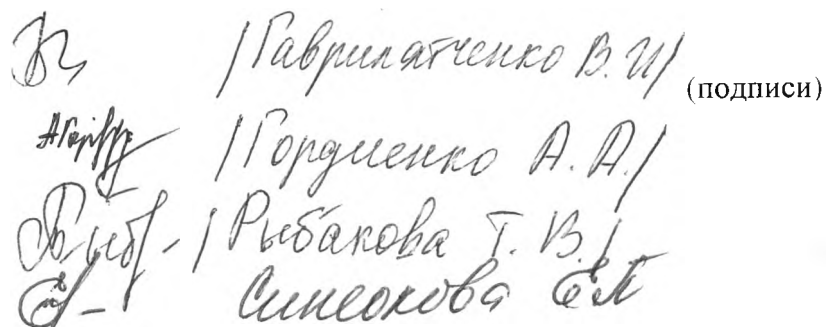 /Гаврилатченко В. И/
(подписи)
/Гордиенко А. А./
/Рыбакова Т. В./
Синеокова